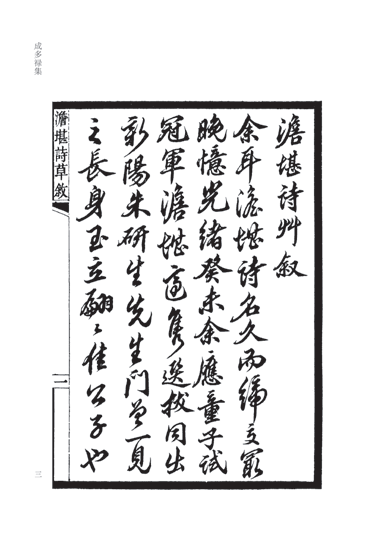 澹堪詩艸敘
余耳澹堪詩名久而締交最
晚憶光緒癸未余應童子試
冠軍澹堪適雋選拔同出
新陽朱研生先生門曾一見
之長身玉立翩〻佳公子也
澹堪詩草敘
一
成多禄集
三